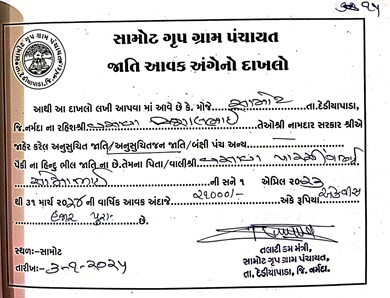 સામોટ ગૃપ ગ્રામ પંચાયત
જાતિ આવક અંગેનો દાખલો
આથી આ દાખલો લખી આપવા માં આવે છે કે. મોજે સામોટ તા.દેડીયાપાડા,
જિ.નર્મદા ના રહિશશ્રી વસાવા તેઓશ્રી નામદાર સરકાર શ્રીએ
જાહેર કરેલ અનુસુચિત જાતિ/અનુસુચિતજન જાતિ/બંક્ષી પંચ અન્ય
પૈકી ના હિન્દુ ભીલ જાતિ ના છે.તેમના પિતા/વાલીશ્રી વસાવા
ની સને ૧ એપ્રિલ ૨૦૨૩
થી ૩૧ માર્ચ ૨૦૨૪ ની વાર્ષિક આવક અંદાજે ૨૧૦૦૦/- અંકે રૂપિયા એકવીસ
હજાર પુરા છે.
સ્થળઃ-સામોટ
તારીખઃ-૩-૧-૨૦૨૫
તલાટી કમ મંત્રી,
સામોટ ગૃપ ગ્રામ પંચાયત
તા. દેડીયાપાડા, જિ. નર્મદા.